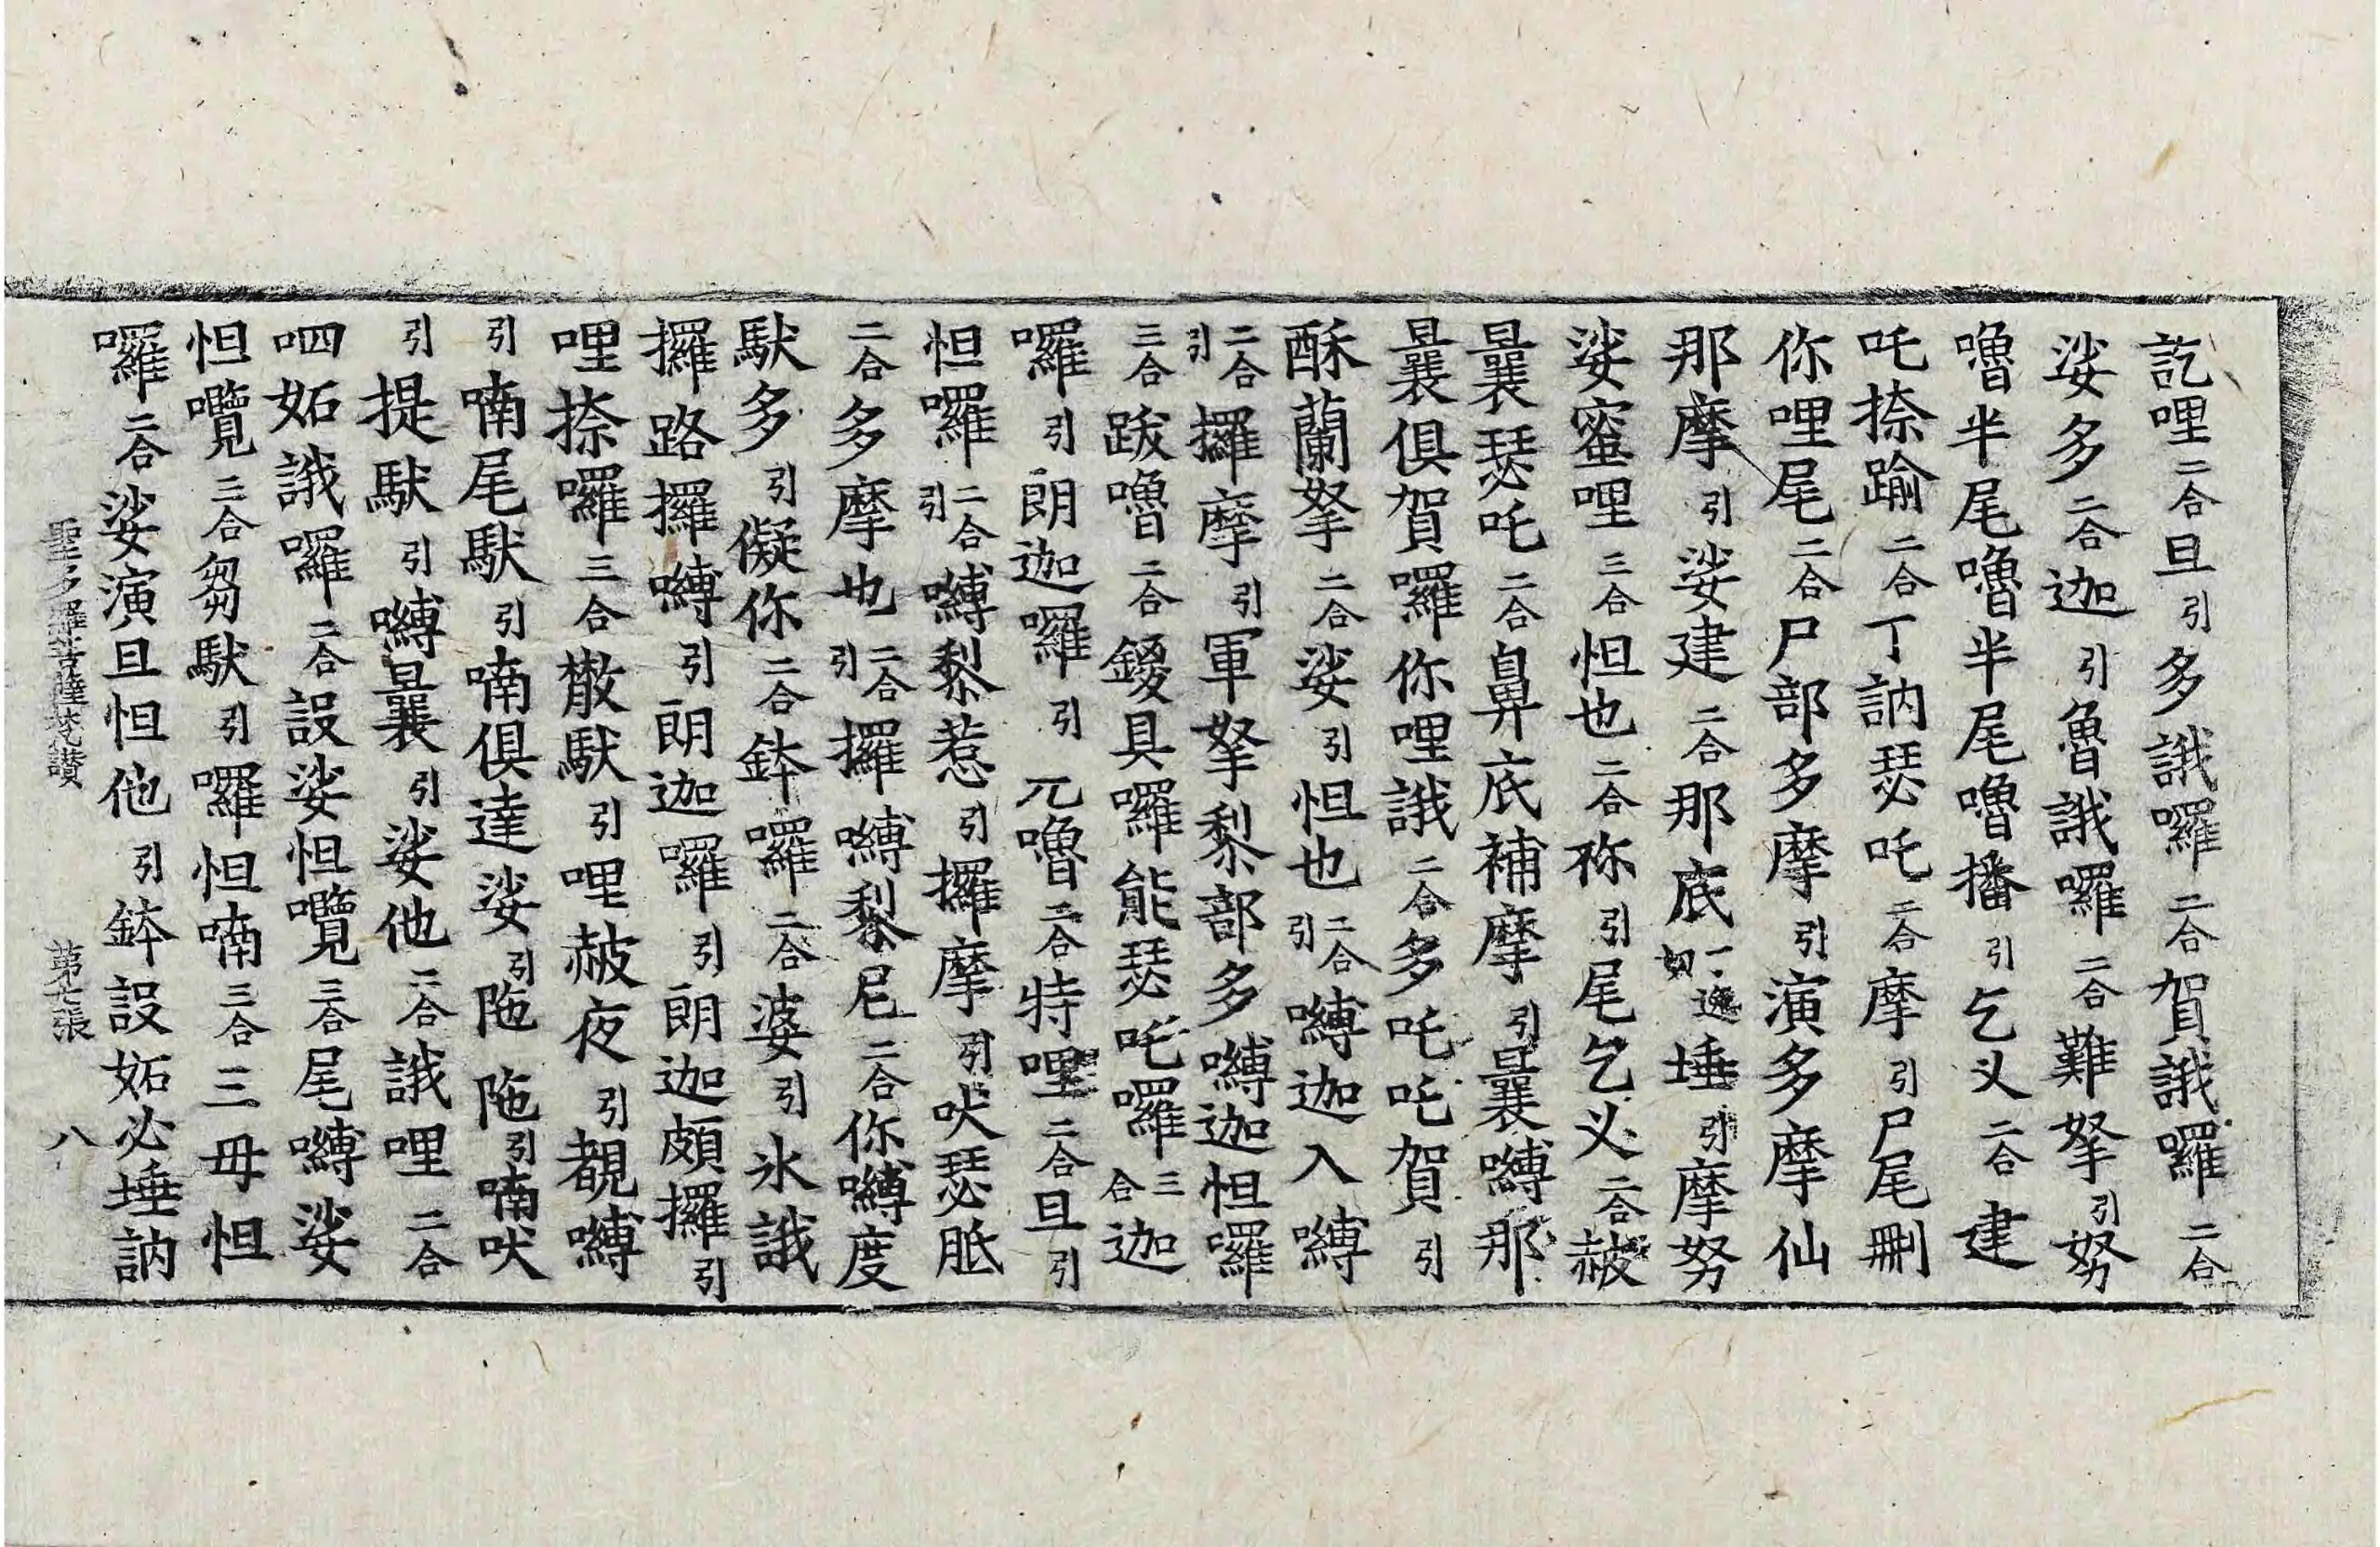 訖哩二合旦引多誐囉二合賀誐囉二合
娑多二合迦引魯誐囉二合難拏引努
嚕半尾嚕半尾嚕播引乞义二合建
吒捺踰二合丁訥瑟吒二合摩引尸尾刪
你哩尾二合尸部多摩引演多摩仙
那摩引娑建二合那底埵引摩努
娑蜜哩三合怛也二合祢引尾乞义二合赧
曩瑟吒二合鼻底補摩引曩嚩那
曩俱賀囉你哩誐二合多吒吒賀引
酥蘭拏二合娑引怛也二合引嚩迦入嚩
二合引攞摩引軍拏黎部多嚩迦怛囉
三合跋嚕二合鑁具囉能瑟吒囉三合迦
囉引朗迦囉引兀嚕二合特哩二合旦引
怛囉二合引嚩黎惹引攞摩引吠瑟胝
二合多摩也二合引攞嚩黎尼二合你嚩度
馱多引儗你二合鉢囉二合婆引氷誐
攞路攞嚩引朗迦囉引朗迦頗攞引
哩捺囉三合散馱引哩赧夜引覩嚩
引喃尾馱引喃俱達娑引陁陁引喃吠
引提馱引嚩曩引娑他二合誐哩二合
呬妬誐囉二合設娑怛囕三合尾嚩娑
怛囕二合芻馱引囉怛喃三合三毋怛
囉二合娑演旦怛他引鉢設妬必埵訥
聖多羅菩薩梵讃 第七張 八